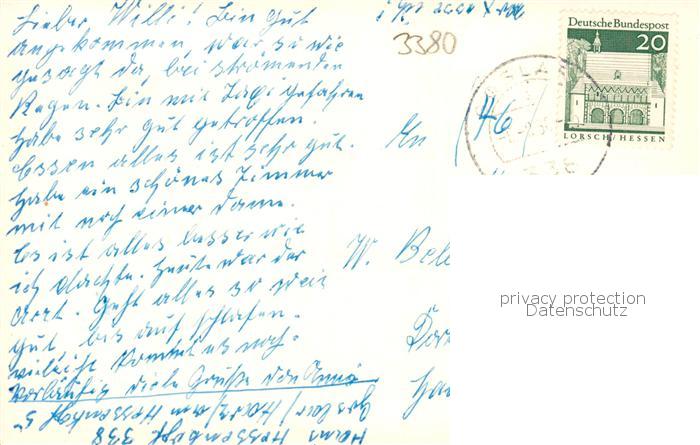 Lieber Willi! Bin gut
angekommen, war, so wie
gesagt da, bei strömenden
Regen. Bin mit Taxi gefahren
habe sehr gut getroffen.
Essen alles ist sehr gut.
habe ein schönes Zimmer
mit noch einer Dame.
Es ist alles besser wie
ich dachte. Heute war der
Arzt. Geht alles so weit
gut bis auf schlafen.
vieleicht kommt es noch.
Vorläufig viele Grüße von Änne
Goslar/Harz/am Hessenkopf 5
Haus Hessenkopf 338
3380
Deutsche Bundespost
20
LORSCH/HESSEN
GOSLAR
An
(46)
W. Bele
Dor
privacy protection
Datenschutz